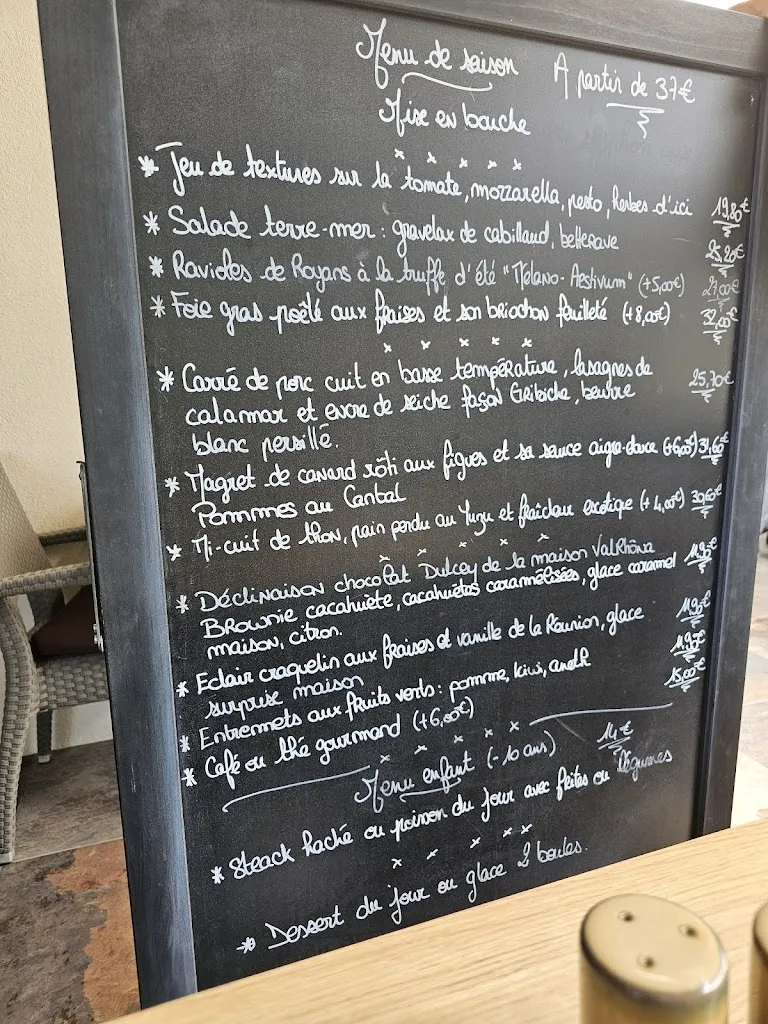 Menu de saison A partir de 37€
Mise en bouche
* Jeu de textures sur la tomate, mozzarella, pesto, herbes d'ici 19,80€
* Salade terre-mer : gravelax de cabillaud, betterave 25,20€
* Ravioles de Royans à la truffe d'été "Mélano-Aestivum" (+5,00€) 27,00€
* Foie gras poêlé aux fraises et son briochon feuilleté (+8,00€) 32,00€
* Carré de porc cuit en basse température, lasagnes de
calamar et encre de seiche façon Gribiche, beurre 25,70€
blanc persillé.
* Magret de canard rôti aux figues et sa sauce aigre-douce (+6,00€) 31,60€
Pommes au Cantal
* Mi-cuit de thon, pain perdu au Yuzu et fraîcheur exotique (+4,00€) 30,60€
* Déclinaison chocolat Dulcey de la maison Valrhôna
Brownie cacahuète, cacahuètes caramélisées, glace caramel 11,90€
maison, citron.
* Eclair craquelin aux fraises et vanille de la Réunion, glace 11,90€
surprise maison
* Entremets aux fruits verts : pomme, kiwi, aneth 11,90€
* Café ou thé gourmand (+6,00€) 15,00€
Menu enfant (-10 ans) 14€
* Steack haché ou poisson du jour avec frites ou légumes
* Dessert du jour ou glace 2 boules.